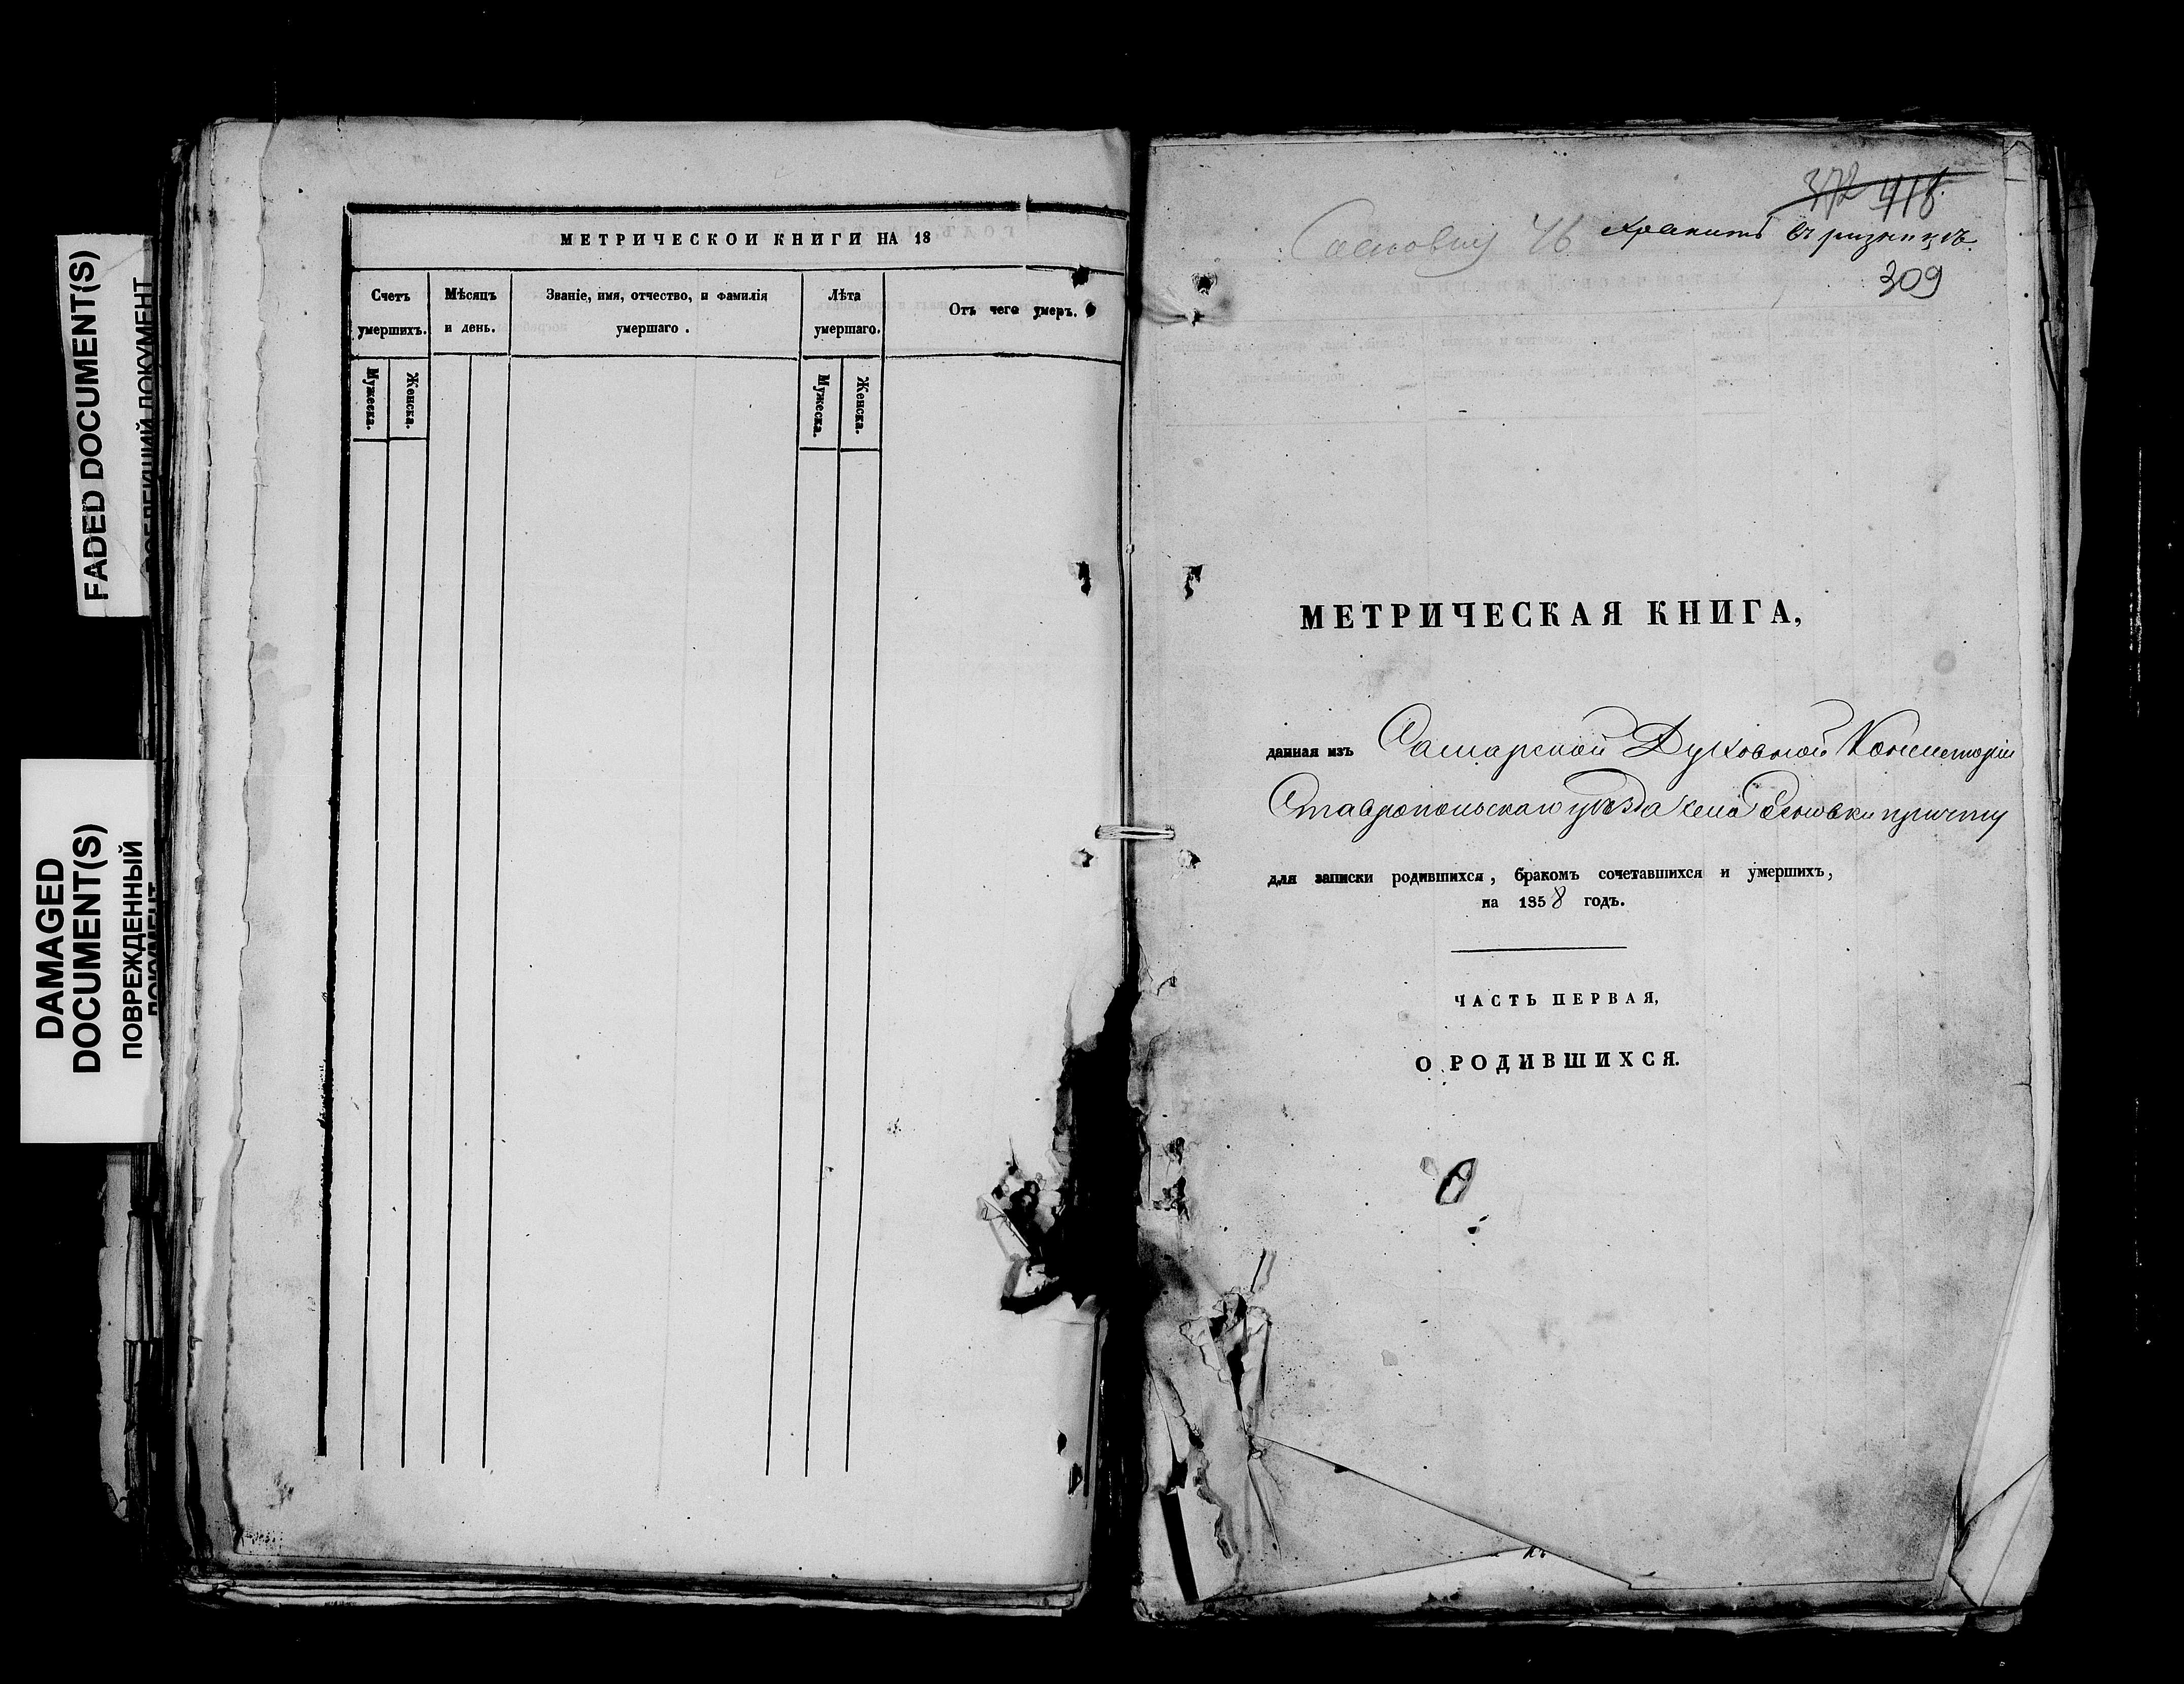 FADED DOCUMENT(S)
DAMAGED
DOCUMENT(S)
ПОВРЕЖДЕННЫЙ
ДОКУМЕНТ
МЕТРИЧЕСКОЙ КНИГИ НА 18
Счетъ умершихъ.
Мѣсяцъ и день.
Званіе, имя, отчество, и фамилія умершаго.
Лѣта умершаго.
Отъ чего умеръ.
Мужеска.
Женска.
Мужеска.
Женска.
372 418
46 хранить въ ризницѣ.
309
МЕТРИЧЕСКАЯ КНИГА,
данная изъ Самарской Духовной Консисторіи
Ставропольскаго уѣзда села причту
для записки родившихся, бракомъ сочетавшихся и умершихъ,
на 1858 годъ.
ЧАСТЬ ПЕРВАЯ,
О РОДИВШИХСЯ.